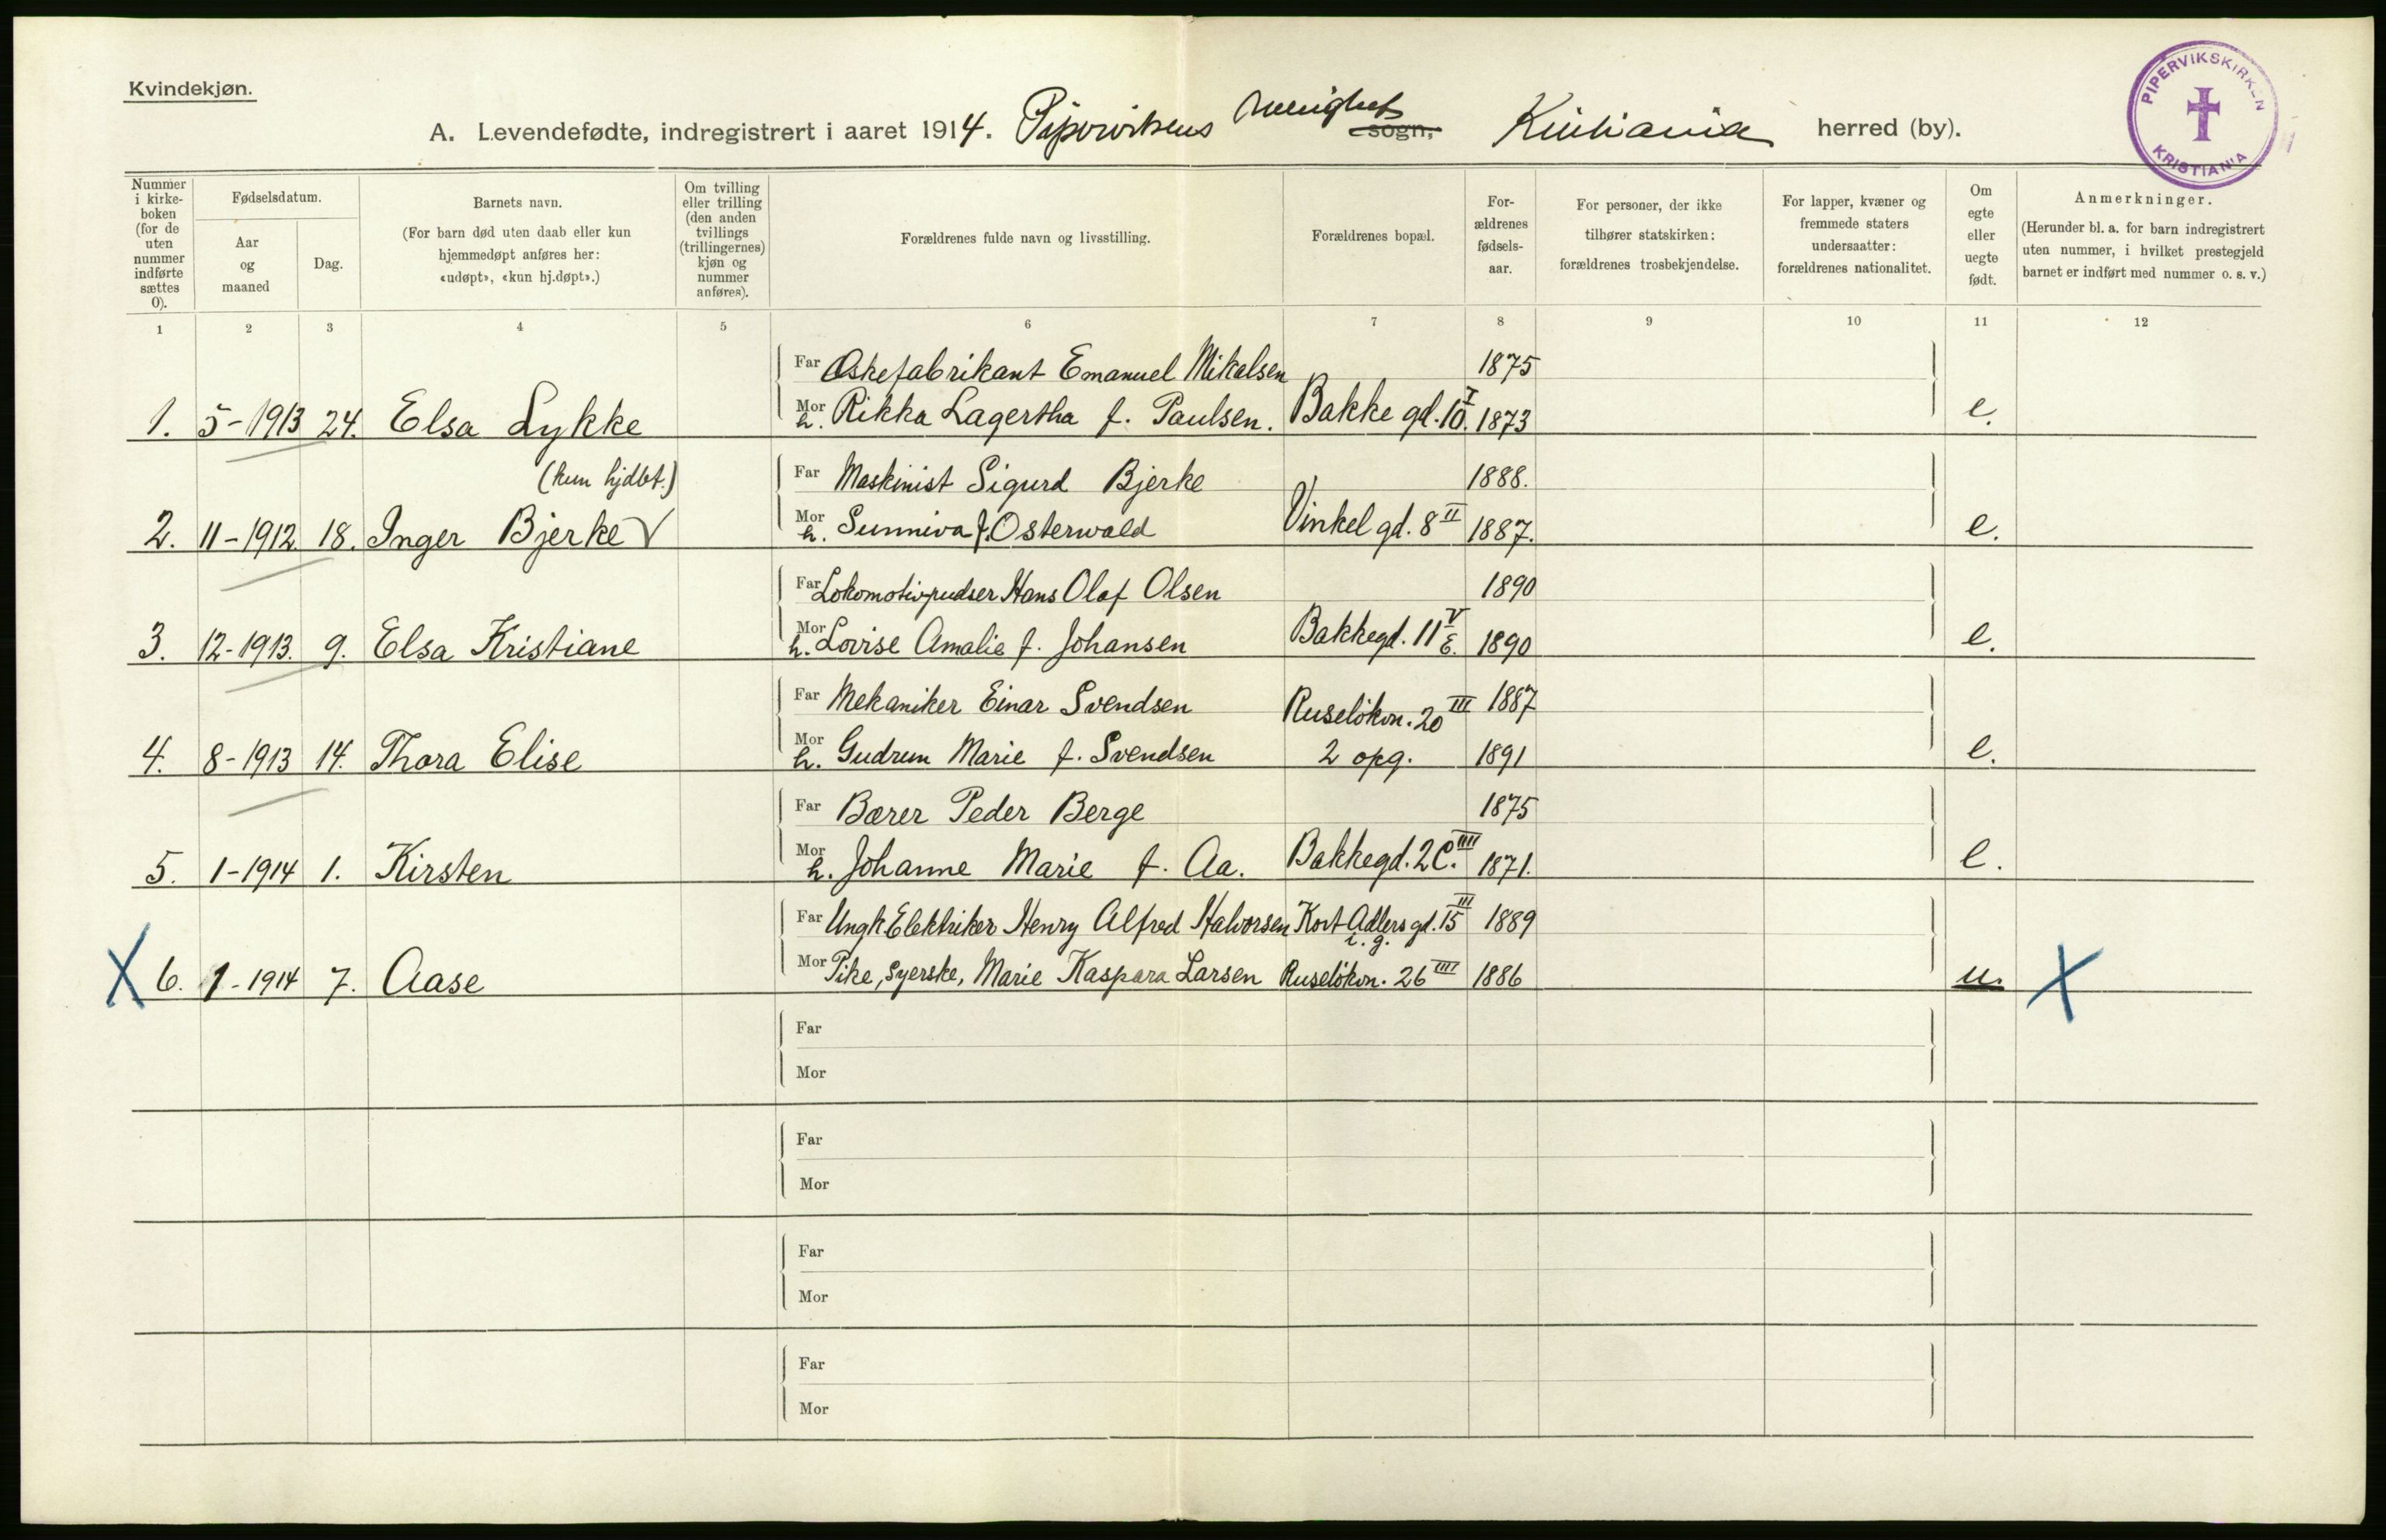 Kvindekjøn.
A. Levendefødte, indregistrert i aaret 1914. Pipervikens menighet sogn, Kristiania herred (by).
PIPERVIKSKIRKEN
KRISTIANIA
Nummer i kirke-boken (for de uten nummer indførte sættes 0).
Fødselsdatum.
Aar og maaned
Dag.
Barnets navn.
(For barn død uten daab eller kun hjemmedøpt anføres her: «udøpt», «kun hj.døpt».)
Om tvilling eller trilling (den anden tvillings (trillingernes) kjøn og nummer anføres).
Forældrenes fulde navn og livsstilling.
Forældrenes bopæl.
For-ældrenes fødsels-aar.
For personer, der ikke tilhører statskirken: forældrenes trosbekjendelse.
For lapper, kvæner og fremmede staters undersaatter: forældrenes nationalitet.
Om egte eller uegte født.
Anmerkninger.
(Herunder bl. a. for barn indregistrert uten nummer, i hvilket prestegjeld barnet er indført med nummer o. s. v.)
1 2 3 4 5 6 7 8 9 10 11 12
Far Æskefabrikant Emanuel Mikalsen 1875
1. 5-1913 24. Elsa Lykke Mor h. Rikka Lagertha f. Paulsen. Bakke gd. 10. I 1873 e.
(kun hjdbt.) Far Maskinist Sigurd Bjerke 1888.
2. 11-1912. 18. Inger Bjerke Mor h. Sunniva f. Osterwold Vinkel gd. 8 II 1887. e.
Far Lokomotivpudser Hans Olaf Olsen 1890
3. 12-1913. 9. Elsa Kristiane Mor h. Lovise Amalie f. Johansen Bakkegd. 11 E. V 1890 e.
Far Mekaniker Einar Svendsen Ruseløkvn. 20 III 1887
4. 8-1913 14. Thora Elise Mor h. Gudrun Marie f. Svendsen 2 opg. 1891 e.
Far Bærer Peder Berge 1875
5. 1-1914 1. Kirsten Mor h. Johanne Marie f. Aa. Bakkegd. 2 C. IIII 1871. e.
Far Ungk. Elektriker Henry Alfred Halvorsen Kort Adlers gd. 15 III i. g. 1889
X 6. 1-1914 7. Aase Mor Pike, Syerske, Marie Kaspara Larsen Ruseløkvn. 26 IIII 1886 u. X
Far
Mor
Far
Mor
Far
Mor
Far
Mor